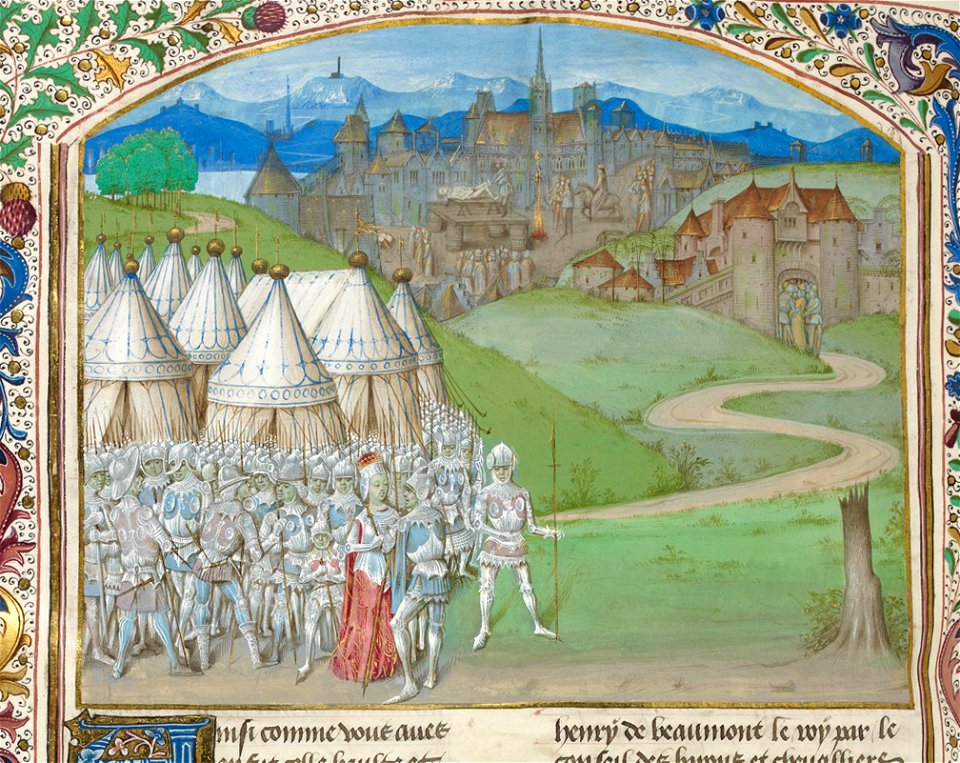 Ainsi comme vous aues
celle haulte et
henry de beaumont le roy par le
conseil des barons et cheualliers